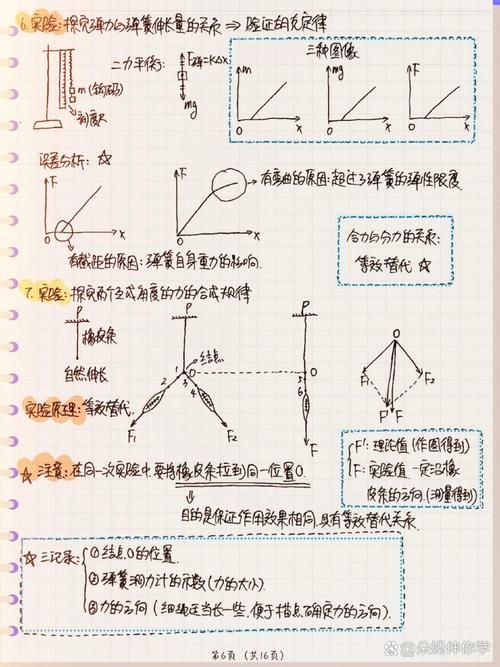 6.实验:探究弹力与弹簧伸长量的关系 ⇒ 验证胡克定律
二力平衡: F弹=K△x
mg
m(钩码)
刻度尺
三种图像
m x 0
mg x 0
F x 0
误差分析: ☆
F x 0
有截距的原因:弹簧自身重力的影响.
F x 0
有弯曲的原因:超过了弹簧的弹性限度.
合力与分力的关系:
等效替代 ☆
7.实验:探究两个互成角度的力的合成规律
P
橡皮条
自然伸长
P
结点
1 O
2 3 4
F1 F2
P
O
5
6
F
O
F1 F2
F' F
实验原理:等效替代.
F':理论值(作图得到)
F:实验值,一定沿橡
皮条的方向.(测量得到)
☆ 注意:在同一次实验中,要将橡皮条拉到同一位置O.
目的是保证作用效果相同,具有等效替代关系.
☆ 三记录:
①结点O的位置.
②弹簧测力计的示数(力的大小).
③力的方向(细绳适当长一些,便于描点确定力的方向).
第6页 (共16页)
@朵妈伴你学